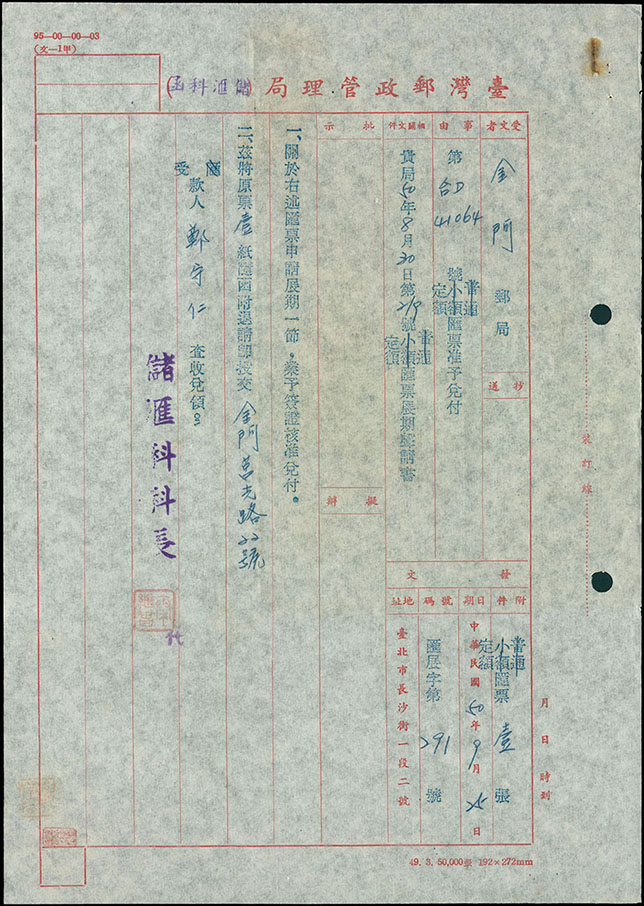 95—00—00—03
(文—1甲)
臺灣郵政管理局(儲匯科函)
受文者
金門郵局
抄送
事由
第合D41064號普通小額定額匯票准予兌付
相關文件
貴局50年8月30日第219號普通小額定額匯票展期聲請書
批示
擬辦
發文
附件
普通小額定額匯票壹張
日期
中華民國50年9月25日
號碼
匯展字第291號
地址
臺北市長沙街一段二號
一、關於右述匯票申請展期一節，業予簽證核准兌付。
二、茲將原票壹紙隨函附退請即投交金門莒光路22號
受款人鄭守仁查收兌領。
儲匯科科長
代
裝訂線
月日時到
49. 3. 50,000張 192×272mm